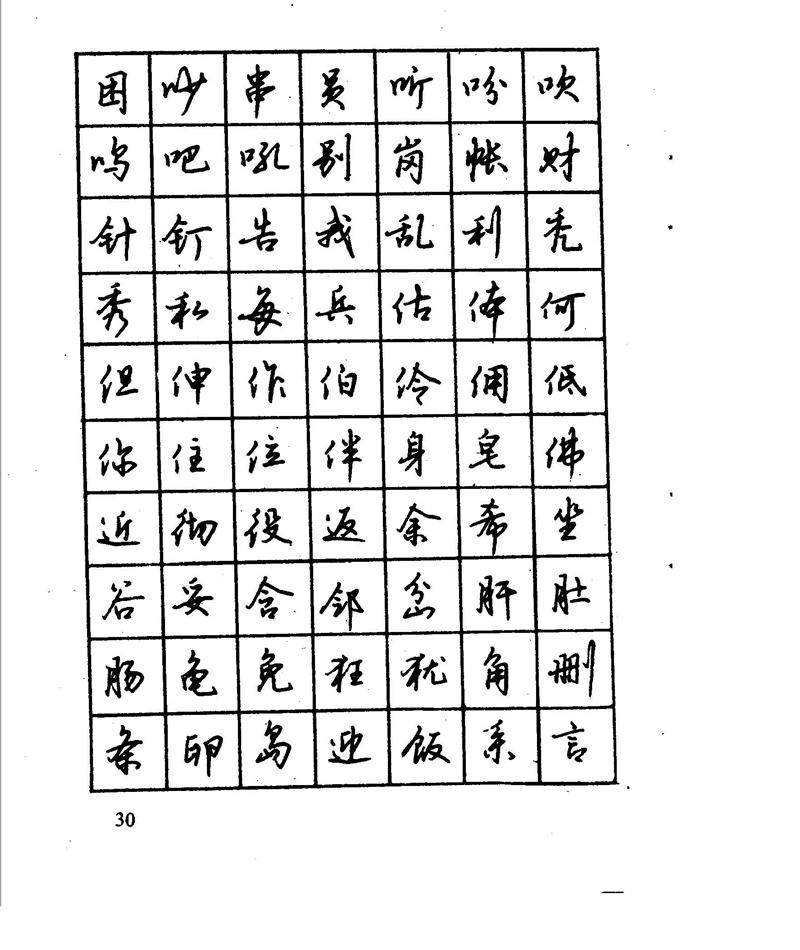 困吵串员听吩吹
呜吧吼别岗帐财
针钉告我乱利秃
秀私每兵估体何
但伸作伯伶佣低
你住位伴身皂佛
近彻役返余希坐
谷妥含邻岔肝肚
肠龟免狂犹角删
条卵岛迎饭系言
30